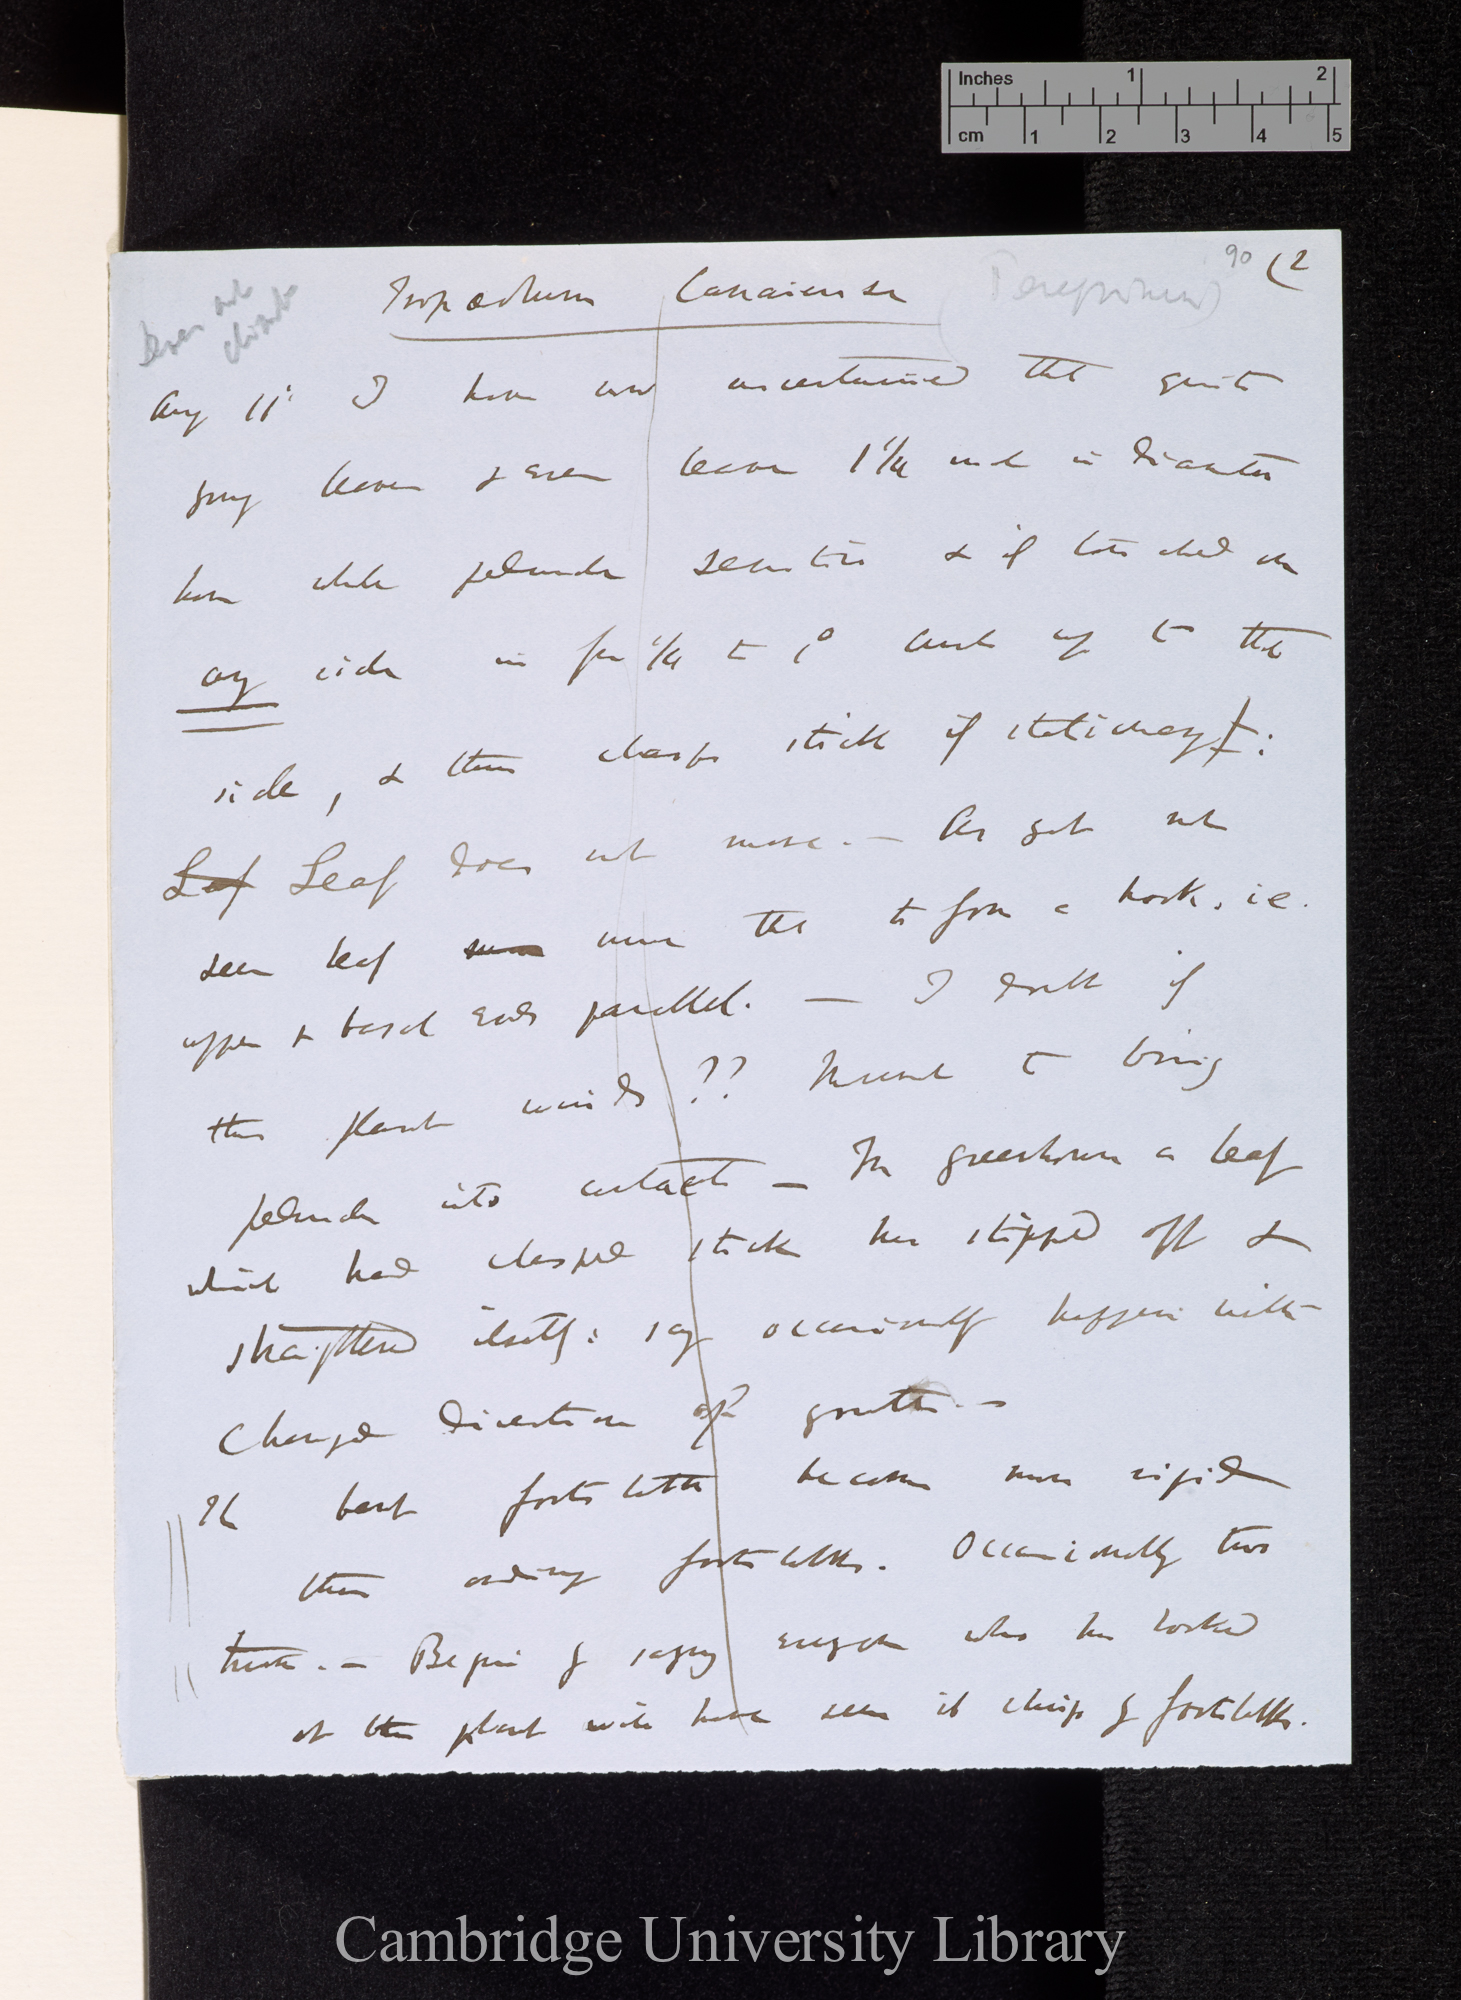 Inches 1 2
cm 1 2 3 4 5
90 (2
Tropæolum Canariense (Peregrinum)
Aug 11' I have now ascertained that quite
young leaves & even leaves 1 1/4 inch in diameter
have whole peduncle sensitive & if touched on
any side in from 1/4 to 1° curls up to that
side, & then clasps stick if stationary:
Leaf Leaf does not move. — As yet not
seen leaf move than to form a hook, i.e.
upper & basal ends parallel. — I doubt if
this plant winds?? Movement to bring
peduncle into contact — In greenhouse a leaf
which had clasped stick has slipped off &
straightened itself: say occasionally happens with
change direction of growth. —
The bent footstalk become more rigid
than ordinary footstalks. Occasionally two
turns. — Begin by saying everyone who has looked
at the plant will have seen it clings by footstalks.
Cambridge University Library